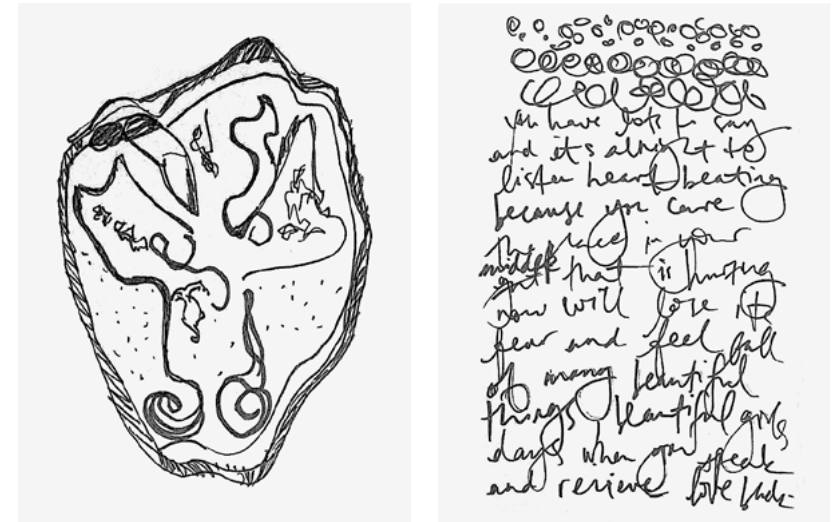 you have lots to say
and it's alright to
listen heart beating
because you care
this place in your
middle gut that is hurting
now will lose its
fear and feel full
of many beautiful
things beautiful
days when you speak
and recieve love back